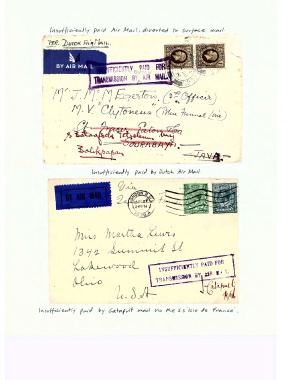 Insufficiently paid Air Mail, diverted to surface mail
PER DUTCH Air Mail.
BY AIR MAIL
INSUFFICIENTLY PAID FOR
TRANSMISSION BY AIR MAIL
Mr J. M. Egerton, (2nd Officer)
M.V. "Clytoneus" (Blue Funnel Line)
SOERABAYA
JAVA
Balikpapan
Insufficiently paid by Dutch Air Mail
BY AIR MAIL
Via
Miss Martha Lewis
1392 Summit St
Lakewood
Ohio
U.S.A
INSUFFICIENTLY PAID FOR
TRANSMISSION BY AIR MAIL
Insufficiently paid by Catapult mail via the S.S Isle de France.